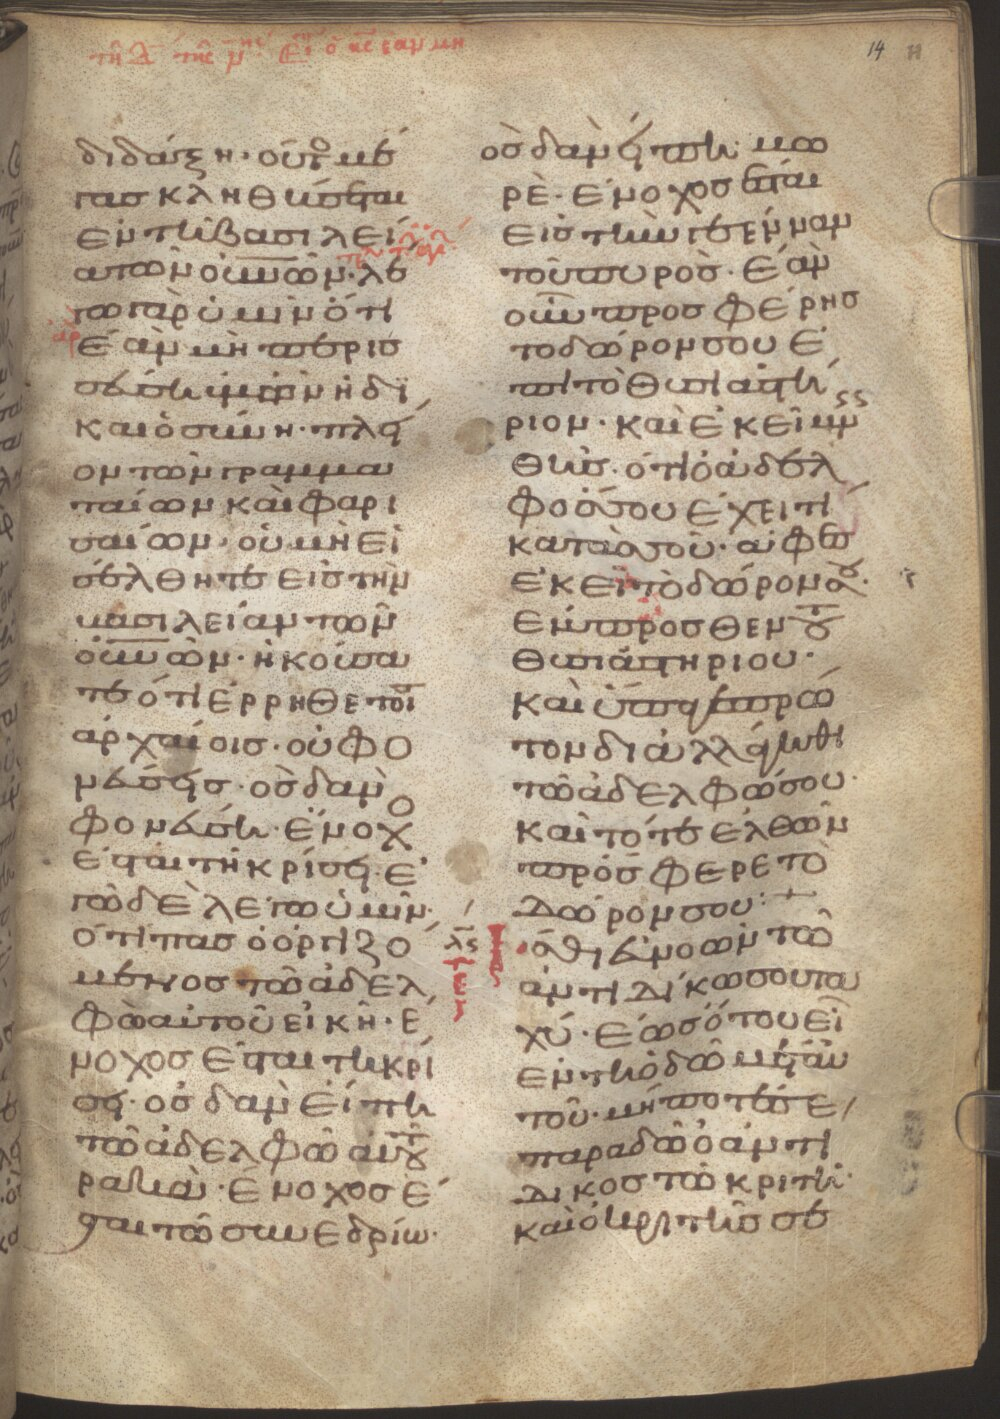 τῆ Δ τῆς
14
διδάξη· οὗτος με
γας κληθήσεται
ἐν τῆ βασιλεί
α τῶν οὐνῶν· λέ
γω γὰρ ὑμῖν ὅτι
ἐὰν μὴ περισ
σεύση ὑμῶν ἡ δι
καιοσύνη· πλεῖ
ον τῶν γραμμα
ταίων καὶ φαρι
σαίων· οὐ μὴ εἰ
σέλθητε εἰς τὴν
βασιλείαν τῶν
οὐνῶν· ἠκούσα
τε ὅτι ἐρρήθε τοῖ
ἀρχαίοις· οὐ φο
νεύσεις· ὃς δ' ἂν
φονεύση· ἔνοχο
ἔσται τῆ κρίσει· ἐ
γὼ δὲ λέγω ὑμῖν·
ὅτι πας ὁ ὀργιζο
μενος τῶ ἀδελ
φῶ αὐτοῦ εἰκῆ· ἔ
νοχος ἔσται τη κρί
σει· ὃς δ' ἂν εἴπη
τῶ ἀδελφῶ αὐτου
ρακὰ· ἔνοχος ἔ
σται τῶ συνεδρίω·
ὃς δ' ἂν εἴπη· μω
ρὲ· ἔνοχος ἔσται
εἰς τὴν γεένναν
τοῦ πυρός· ἐὰν
οὖν προσφέρης
το δῶρον σου ἐ
πὶ τὸ θυσιαστή
ριον· καὶ ἐκεῖ μν
σθῆς· ὅτι ὁ ἀδελ
φός σου ἔχει τι
κατὰ σοῦ· ἄφες
ἐκεῖ τὸ δῶρον σου·
ἔνπροσθεν του
θυσιαστηρίου·
καὶ ὕπαγε πρῶ
τον διαλλάγηθι
τῶ ἀδελφῶ σου·
καὶ τότε ἐλθὼν
πρόσφερε τὸ
δῶρον σου·
λς ἴσθι εὐνοῶν τῶ
ἀντιδίκω σου τα
χύ· ἕως ὅτου εἶ
ἐν τῆ ὁδῶ μετ' αὐ
τοῦ· μήποτέ σε
παραδῶ ὁ ἀντί
δικος τῶ κριτῆ·
καὶ ὁ κριτής σε